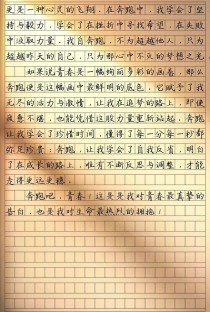 更是一种心灵的飞翔。在奔跑中，我学会了坚
持与毅力，学会了在挫折中寻找希望，在失败
中汲取力量。我自奔跑，不为超越他人，只为
超越昨天的自己，只为那心中不灭的梦想之光。
如果说青春是一幅绚丽多彩的画卷，那么
奔跑便是这幅画中最鲜明的底色。它赋予了我
无尽的活力与激情，让我在追梦的路上，即使
疲惫不堪，也能凭借这股力量重新站起。奔跑
让我学会了珍惜时间，懂得了每一分每一秒都
弥足珍贵；奔跑，让我学会了自我反省，明白
了在成长的路上，唯有不断反思与调整，才能
走得更远更稳。
奔跑吧，青春！这是是我对青春最真挚的
告白，也是我对生命最热烈的拥抱！